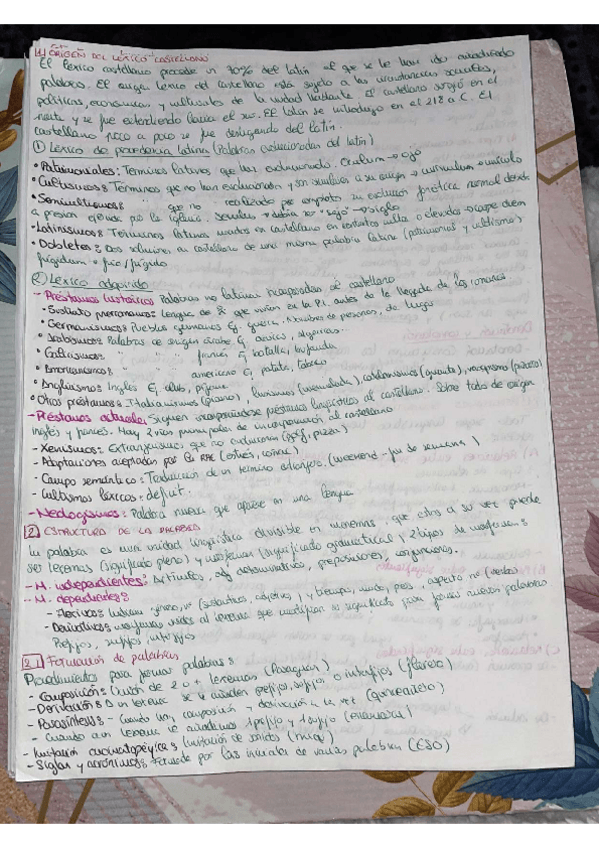 1) ORIGEN DEL LÉXICO CASTELLANO
El léxico castellano procede un 70% del latín al que se le han ido añadiendo
palabras. El origen léxico del castellano está sujeto a las circunstancias sociales,
políticas, económicas y culturales de la unidad hablante. El castellano surgió en el
norte y se fue extendiendo hacia el sur. El latín se introdujo en el 218 a.C. El
castellano poco a poco se fue desligando del latín.
① Léxico de procedencia latina (Palabras evolucionadas del latín)
• Patrimoniales: Términos latinos que han evolucionado. Oculum → ojo
• Cultismos: Términos que no han evolucionado y son similares a su origen → curriculum currículo
• Semicultismos: " que no realizado por completo su evolución fonética normal debido
a presión ejercida por la iglesia. Seculum → debía ser "sejo" → siglo
• Latinismos: Términos latinos usados en castellano en contextos cultos o elevados → carpe diem
• Dobletes: Dos soluciones en castellano de una misma palabra latina (patrimonial y cultismo)
frigidum = frío/frígido
② Léxico adquirido
- Préstamos históricos: Palabras no latinas incorporadas al castellano
• Sustrato prerromano: Lengua de que vivían en la P.I. antes de la llegada de los romanos.
• Germanismos: Pueblos germanos Ej. guerra, Nombres de personas, de lugar
• Arabismos: Palabras de origen árabe Ej. arroz,
• Galicismos: " " francés Ej. botella, bufanda
• Americanismos: " " americano Ej. patata, tabaco
• Anglicismos: Inglés Ej. club,
• Otros préstamos: Italianismos (piano), lusismos (mermelada), catalanismos, vasquismo (pizarra)
- Préstamos actuales: Siguen incorporándose préstamos lingüísticos al castellano. Sobre todo de origen
inglés y francés. Hay 2 vías principales de incorporación al castellano
- Xenismos: Extranjerismos que no evolucionan (golf, pizza)
- Adaptaciones aceptadas por la RAE (estrés,)
- Campo semántico: Traducción de un término (weekend - fin de semana)
- Cultismos léxicos:
- Neologismos: Palabra nueva que aparece en una lengua
2) ESTRUCTURA DE LA PALABRA
La palabra es una unidad lingüística divisible en monemas, que estos a su vez puede
ser lexemas (significado pleno) y morfemas (significado gramatical) 2 tipos de morfemas:
- M. independientes: Artículos, adj determinativos, preposiciones, conjunciones.
- M. dependientes:
- Flexivos: Indican género, nº (sustantivos, adjetivos) y tiempo, modo, pers. aspecto no (verbos)
- Derivativos: morfemas unidos al lexema que modifican su significado para formar nuevas palabras
Prefijos, sufijos, interfijos
2.1) Formación de palabras
Procedimientos para formar palabras:
- Composición: Unión de 2 o + lexemas (Paraguas)
- Derivación: A un lexema se le añaden prefijo, sufijo o interfijos (florero)
- Parasíntesis: - Cuando hay composición y derivación a la vez
- Cuando a un lexema le añadimos 1 prefijo y 1 sufijo
- Imitación onomatopéyica: Imitación de sonidos
- Siglas y acrónimos: Formada por las iniciales de varias palabras (ESO)